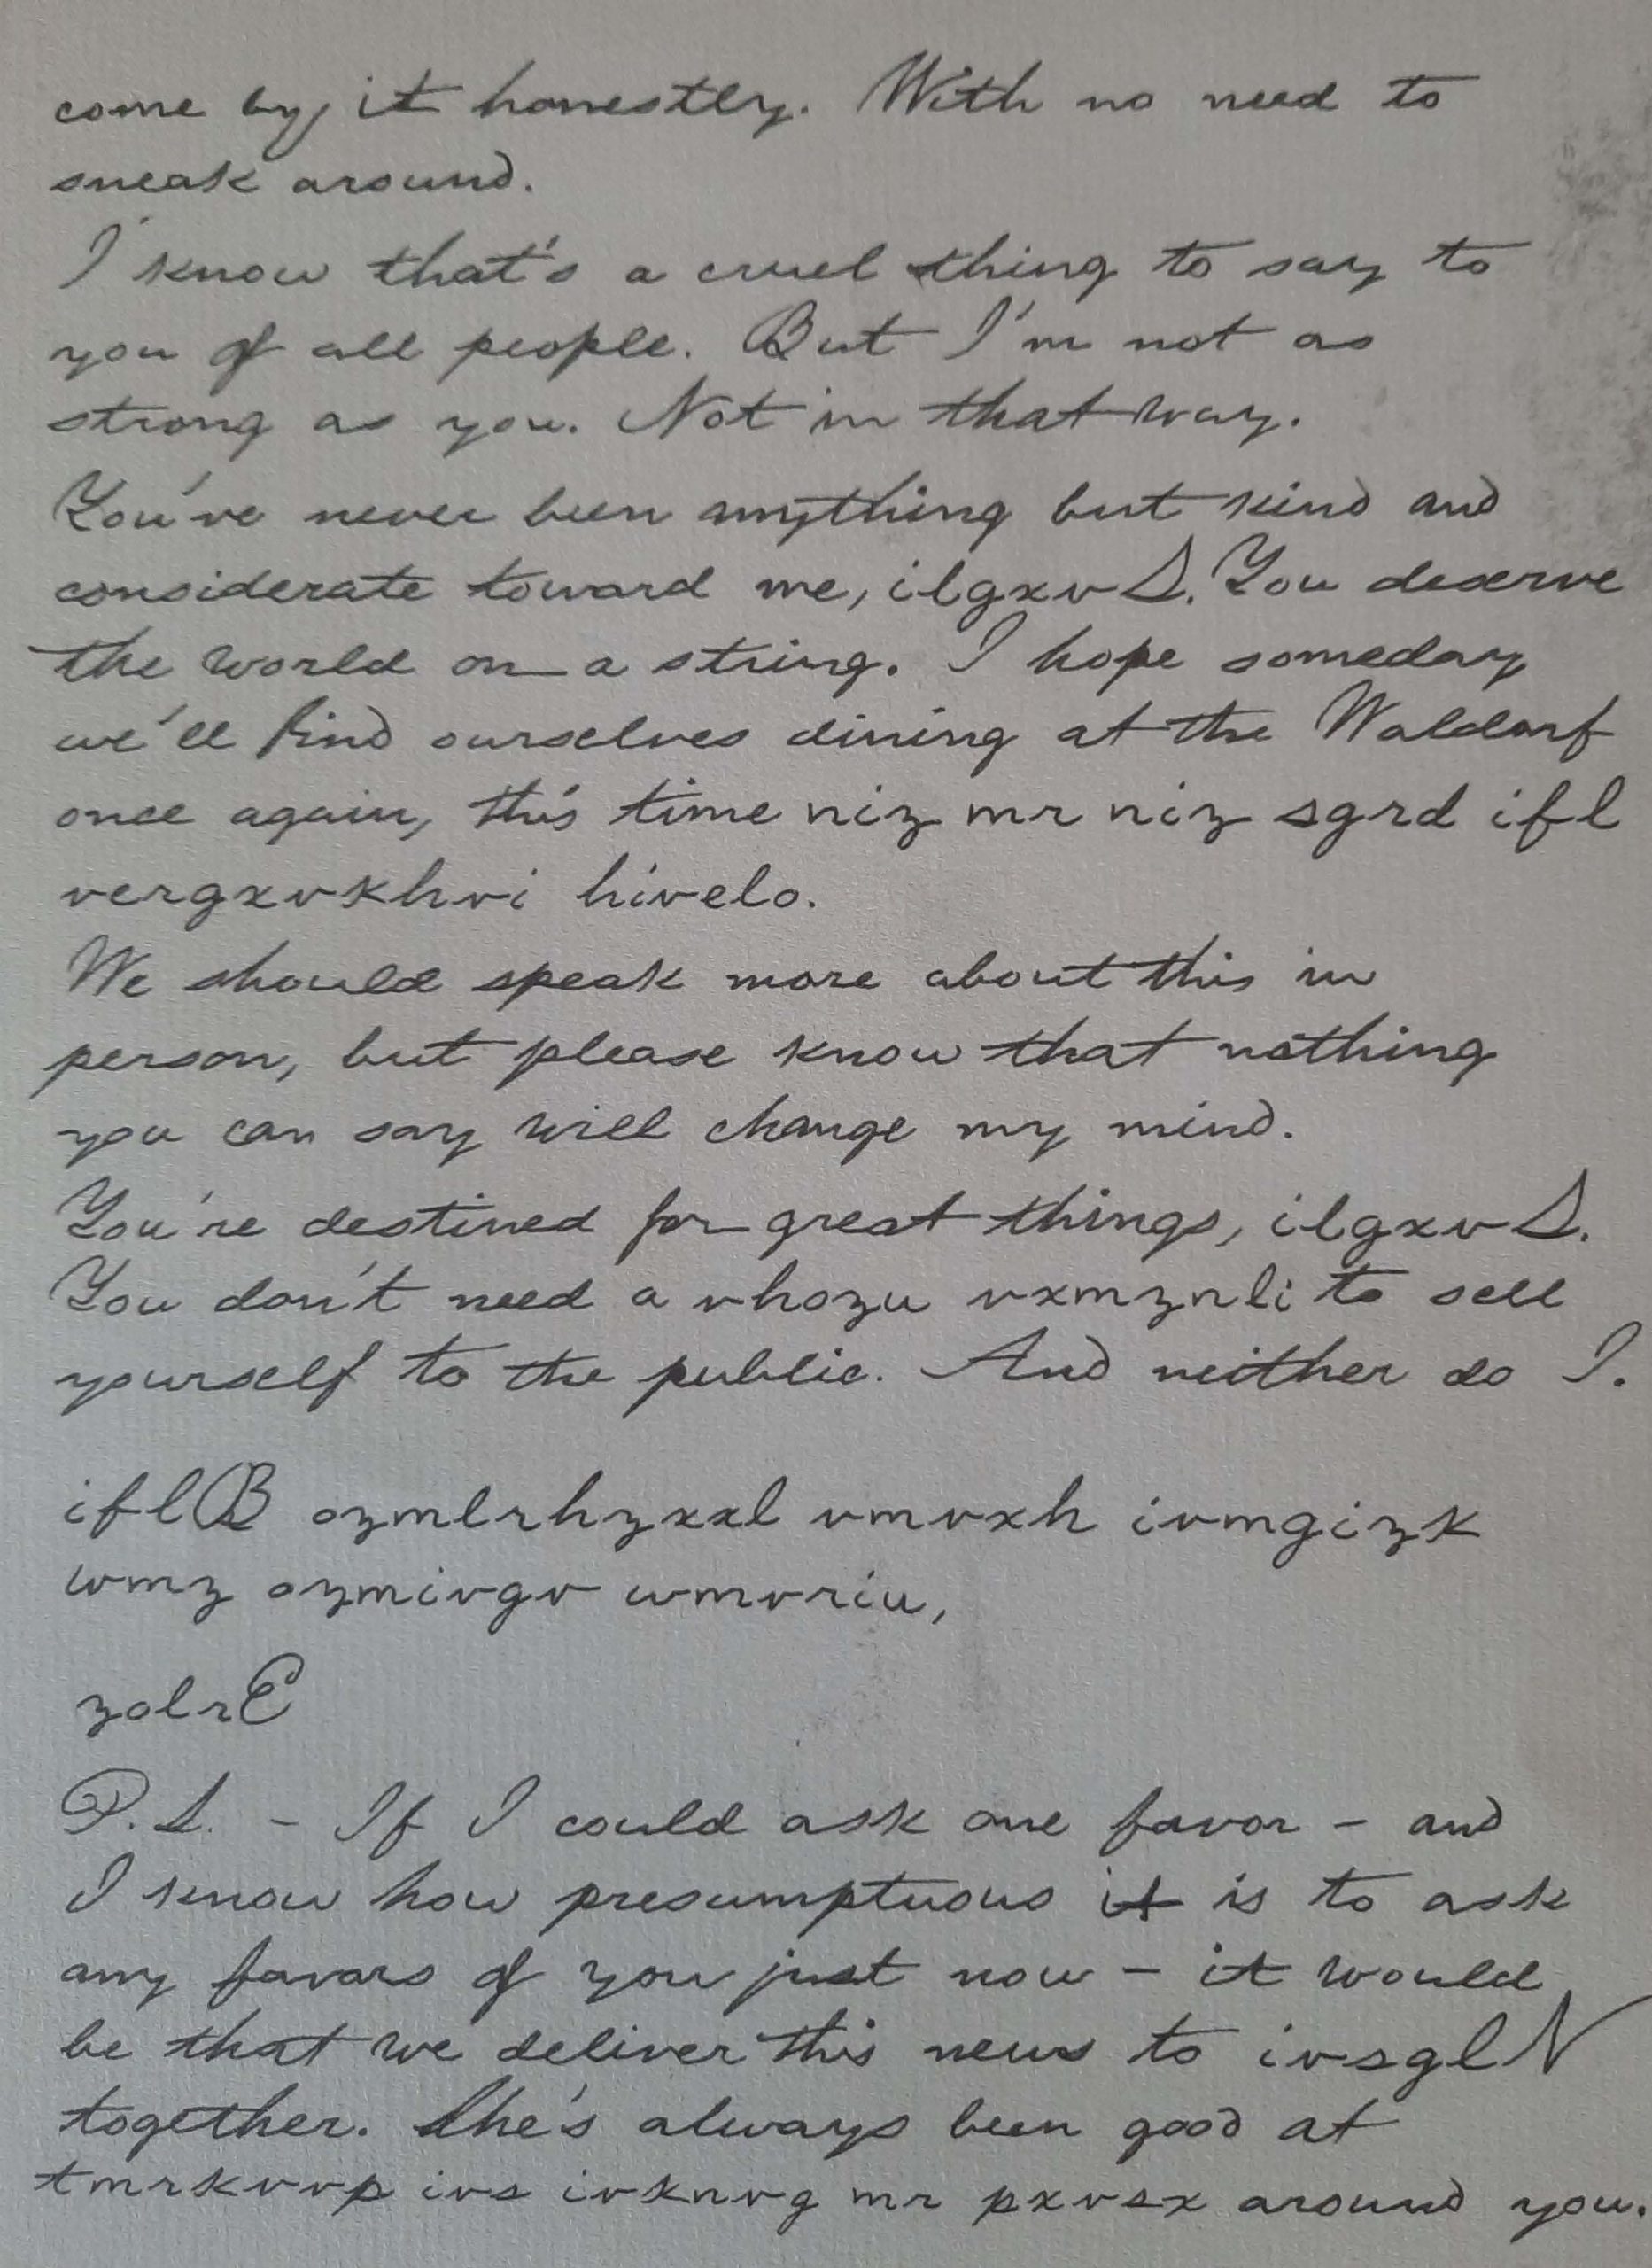 come by it honestly. With no need to
sneak around.
I know that's a cruel thing to say to
you of all people. But I'm not as
strong as you. Not in that way.
You've never been anything but kind and
considerate toward me, ilgxvS. You deserve
the world on a string. I hope someday
we'll find ourselves dining at the Waldorf
once again, this time niz mr niz sgrd ifl
vergxvkhvi hivelo.
We should speak more about this in
person, but please know that nothing
you can say will change my mind.
You're destined for great things, ilgxvS.
You don't need a vhozu vxmznli to sell
yourself to the public. And neither do I.
iflB ozmlrhzxxl vmvxh ivmgizk
wmz ozmivgv wmvriu,
zolrE
P.S. - If I could ask one favor - and
I know how presumptuous it is to ask
any favors of you just now - it would
be that we deliver this news to ivsglN
together. She's always been good at
tmrkvvp ivs ivknvg mr pxvsx around you.